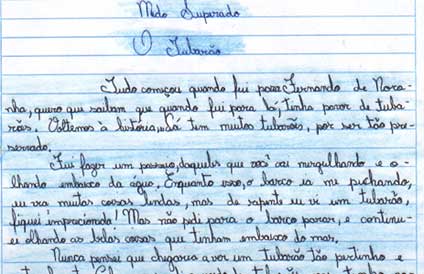 Medo Superado
O Tubarão
Tudo começou quando fui para Fernando de Noro-
nha, quero que saibam que quando fui para lá, tinha pavor de tuba-
rões. Voltemos à história, lá tem muitos tubarões, por ser tão pre-
servado.
Fui fazer um passeio, daqueles que você vai mergulhando e o-
lhando embaixo da água. Enquanto isso, o barco ia me puchando,
eu via muitas coisas lindas, mas de repente eu vi um tubarão,
fiquei impressionada! Mas não pedi para o barco parar, e continu-
ei olhando as belas coisas que tinham embaixo do mar.
Nunca pensei que chegaria a ver um tubarão tão pertinho e